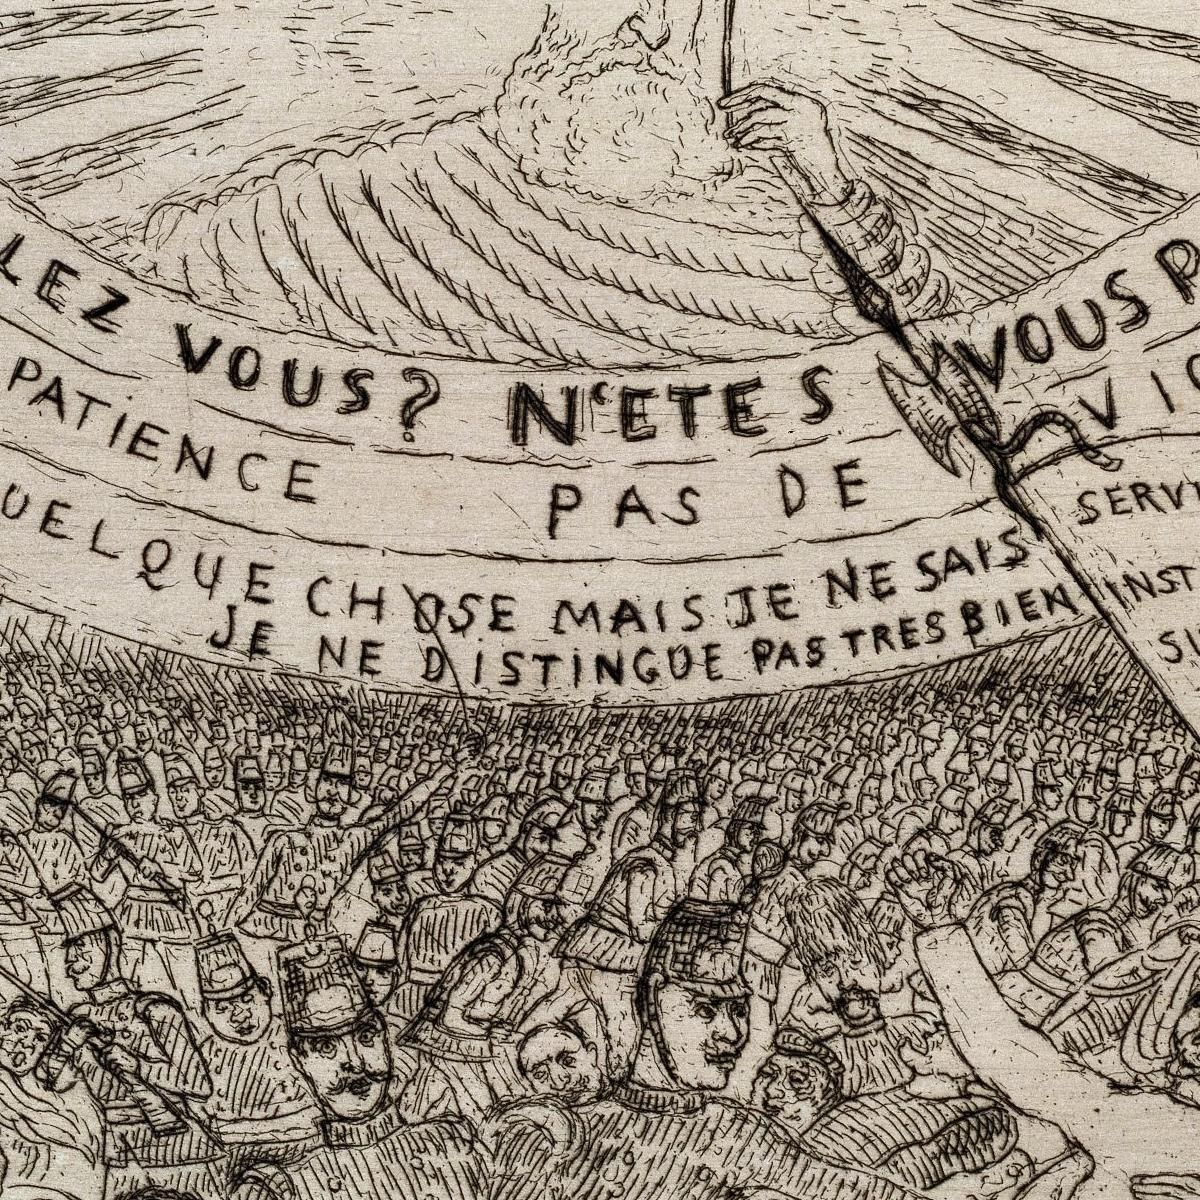 LEZ VOUS? N'ETES VOUS P
PATIENCE PAS DE VIC
UELQUE CHOSE MAIS JE NE SAIS
JE NE DISTINGUE PAS TRES BIEN
SERV
INST
SU